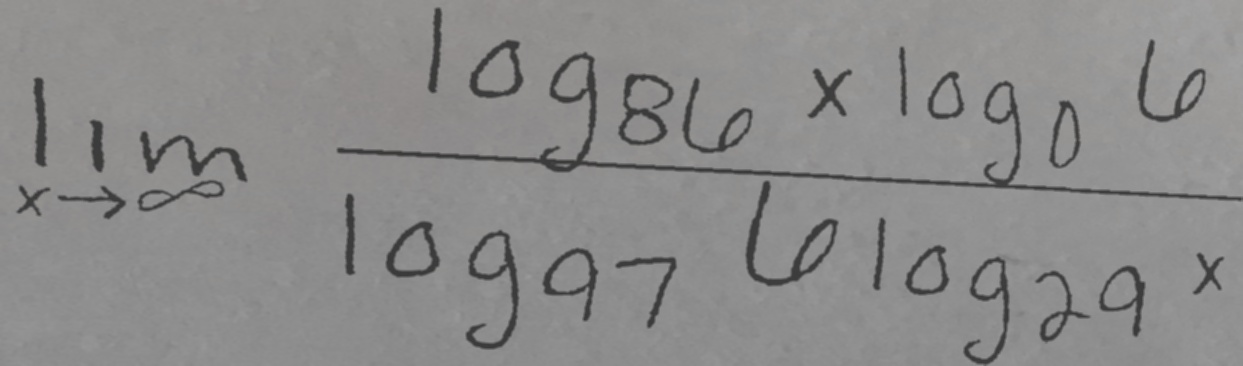 lim x→∞ log₈₆ x log₀ 6 / log₉₇ 6 log₂₉ x